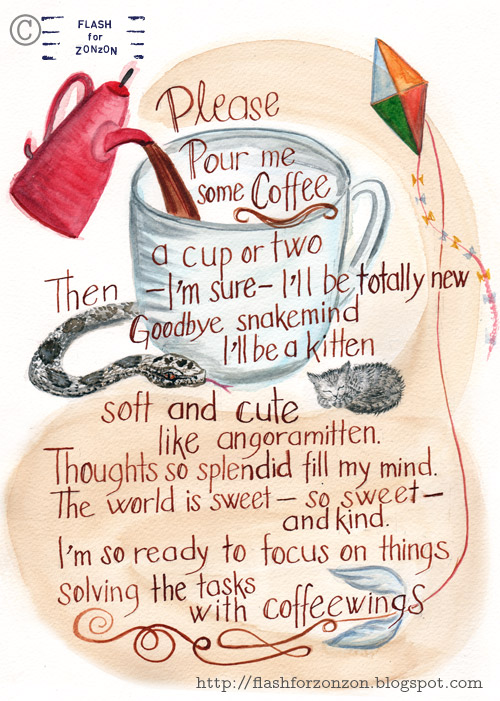 ©
FLASH
for
ZONZON
Please
Pour me
some Coffee
a cup or two
Then –I'm sure– I'll be totally new
Goodbye snakemind
I'll be a kitten
soft and cute
like angoramitten.
Thoughts so splendid fill my mind.
The world is sweet – so sweet –
and kind.
I'm so ready to focus on things
solving the tasks
with coffeewings
http://flashforzonzon.blogspot.com